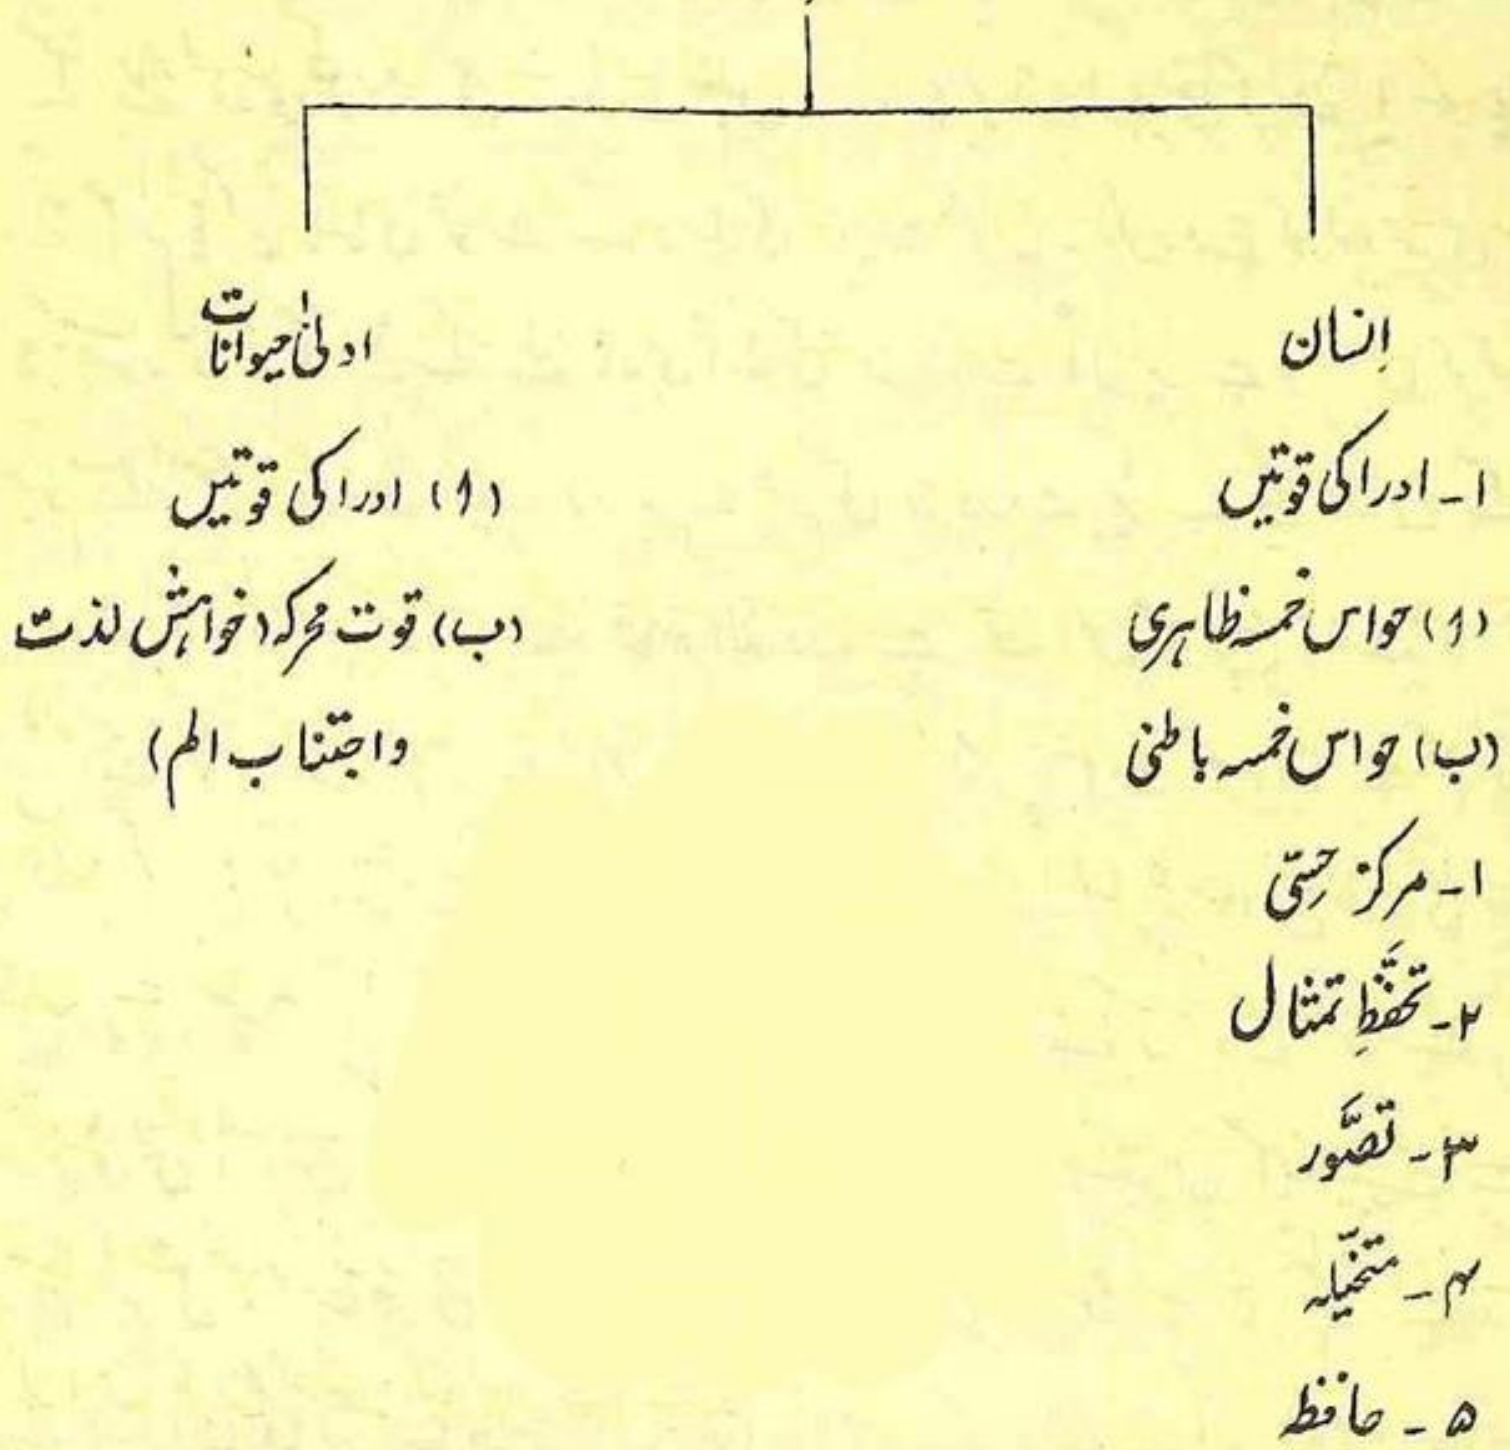 انسان
۱۔ ادراکی قوتیں
(أ) حواس خمسہ ظاہری
(ب) حواس خمسہ باطنی
۱۔ مرکز حِسّی
۲۔ تحفّظِ تمثال
۳۔ تصَوّر
۴۔ متخیّلہ
۵۔ حافظہ
ادنیٰ حیوانات
(أ) ادراکی قوتیں
(ب) قوت محرکہ (خواہش لذت
واجتناب الم)